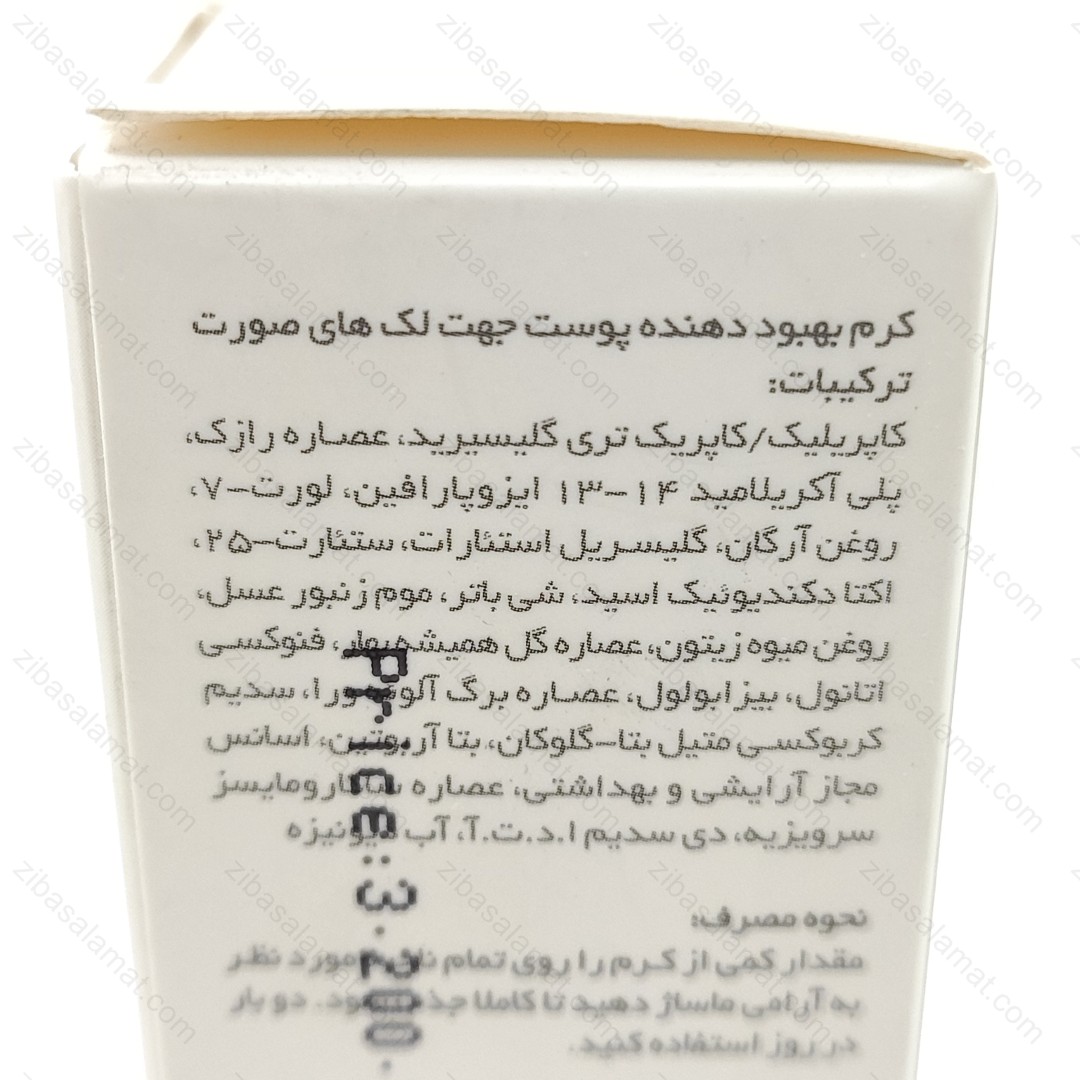 کرم بهبود دهنده پوست جهت لک های صورت
ترکیبات:
کاپریلیک/کاپریک تری گلیسیرید، عصاره رازک،
پلی آکریلامید ۱۴-۱۳ ایزوپارافین، لورت-۷،
روغن آرگان، گلیسریل استئارات، ستئارت-۲۵،
اکتا دکندیوئیک اسید، شی باتر، موم زنبور عسل،
روغن میوه زیتون، عصاره گل همیشه بهار، فنوکسی
اتانول، بیزابولول، عصاره برگ آلوئه ورا، سدیم
کربوکسی متیل بتا-گلوکان، بتا آربوتین، اسانس
مجاز آرایشی و بهداشتی، عصاره ساکارومایسز
سرویزیه، دی سدیم ا.د.ت.آ، آب دیونیزه
نحوه مصرف:
مقدار کمی از کرم را روی تمام ناحیه مورد نظر
به آرامی ماساژ دهید تا کاملا جذب شود. دو بار
در روز استفاده کنید.
Price:3.200.
zibasalamat.com